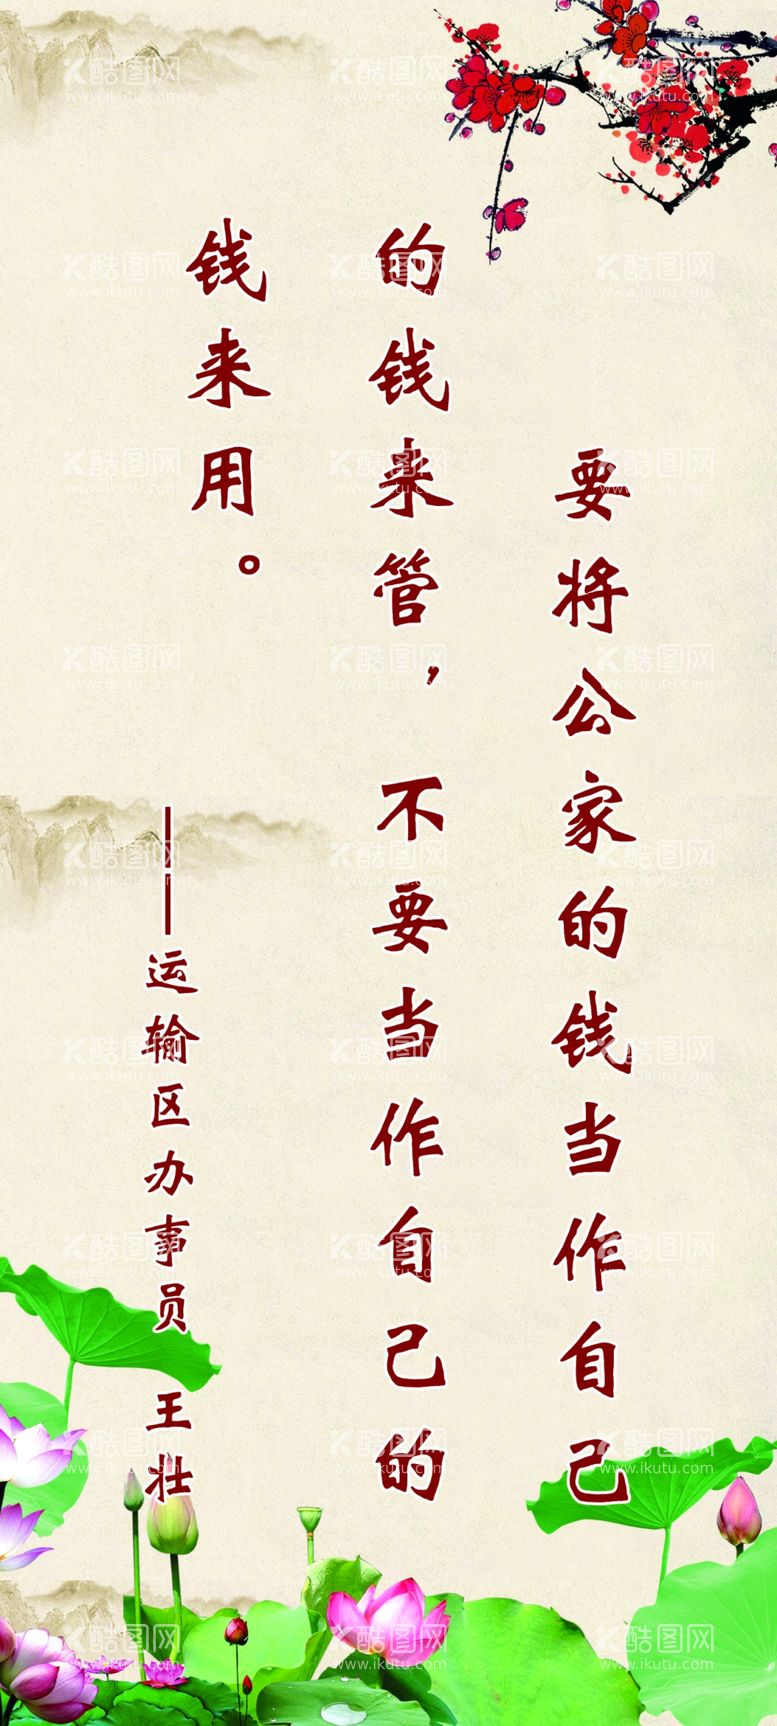 要将公家的钱当作自己
的钱来管，不要当作自己的
钱来用。
——运输区办事员 王壮
酷图网
www.ikutu.com